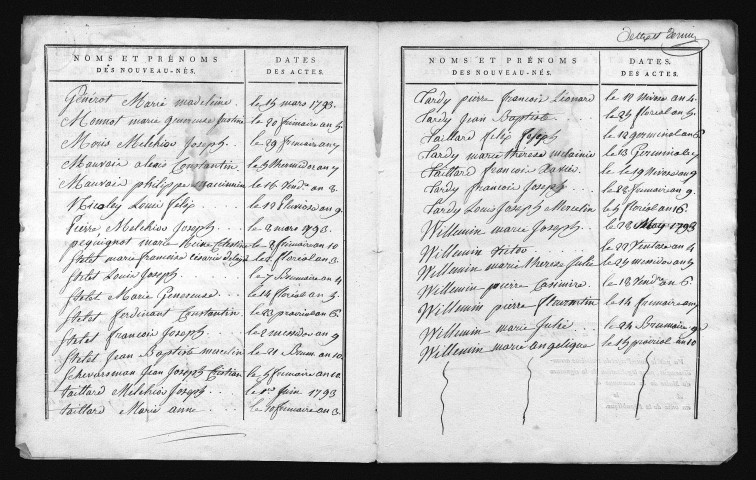 NOMS ET PRÉNOMS
DES NOUVEAU-NÉS.
DATES
DES ACTES.
Générot Marie madeleine le 15 mars 1793.
Monnot marie genereuse le 20 frimaire an 5.
Monis Melchior Joseph le 29 frimaire an 7
Mauvais alexis Constantin le 5 thermidor an 7
Mauvais philippe le 16 Vend.re an 8.
Nicoley Louis felix le 12 Pluviose an 9.
Pierre Melchior Joseph le 2 mars 1793.
pequignot marie le 2 frimaire an 10
marie francoise floréal an 3.
Louis Joseph le 7 Brumaire an 4
Marie Genereuse le 14 floréal an 5.
ferdinant Constantin le 23 prairial an 6.
francois Joseph le 2 messidor an 9
Jean Baptiste le 21 Brum. an 10.
Jean Joseph le 5 frimaire an 10.
taillard Melchior Joseph le 1er Juin 1793
taillard Marie anne le 10 frimaire an 3.
NOMS ET PRÉNOMS
DES NOUVEAU-NÉS.
DATES
DES ACTES.
Tardy pierre francois Léonard le 12 Nivose an 4.
Tardy Jean Baptiste le 25 floréal an 5.
Taillard felix Joseph le 12 germinal an 6
Tardy marie therese melainie le 13 Germinal an 7
Taillard francois Xavier le 19 Nivose an 9
Tardy francois Joseph le 28 frimaire an 9.
Tardy Louis Joseph Marcelin le 5 floréal an 10.
Willemin marie Joseph le 28 May 1793
Willemin Victor le 22 Ventose an 4
Willemin marie therese Julie le 24 messidor an 5
Willemin pierre Casimire le 18 Vend.re an 6.
Willemin pierre florentin le 14 frimaire an 7
Willemin marie Julie le 24 Brumaire an 9
Willemin marie angelique le 15 prairial an 10